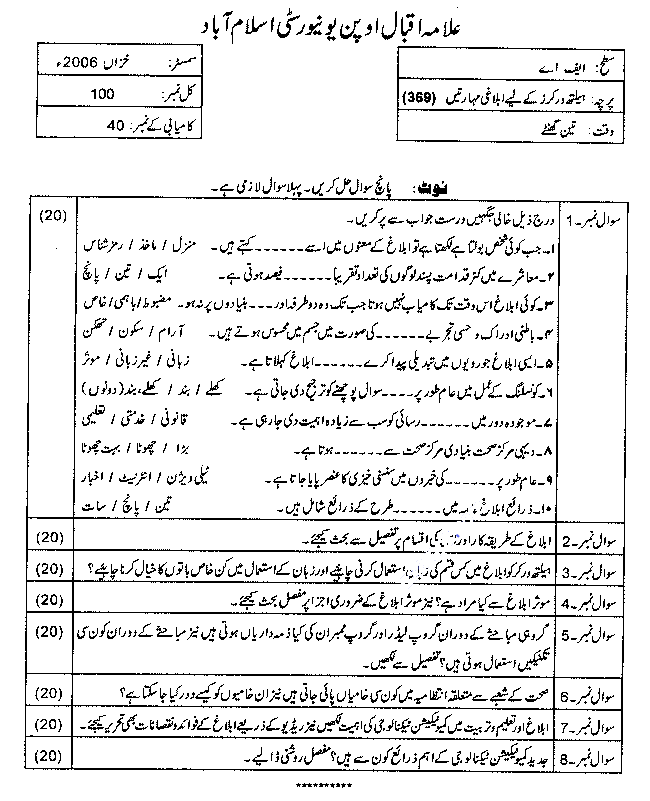 علامہ اقبال اوپن یونیورسٹی اسلام آباد
سطح: ایف اے
پرچہ: ہیلتھ ورکرز کے لیے ابلاغی مہارتیں (369)
وقت: تین گھنٹے
سمسٹر: خزاں 2006ء
کل نمبر: 100
کامیابی کے نمبر: 40
نوٹ: پانچ سوال حل کریں۔ پہلا سوال لازمی ہے۔
سوال نمبر۔1 درج ذیل خالی جگہیں درست جواب سے پر کریں۔ (20)
۱۔ جب کوئی شخص بولتا ہے لکھتا ہے تو ابلاغ کے معنوں میں اسے ------ کہتے ہیں۔ منزل / ماخذ / رمز شناس
۲۔ معاشرے میں کٹر قدامت پسند لوگوں کی تعداد تقریباً ------ فیصد ہوتی ہے۔ ایک / تین / پانچ
۳۔ کوئی ابلاغ اس وقت تک کامیاب نہیں ہوتا جب تک وہ دو طرفہ اور --- بنیادوں پر نہ ہو۔ مضبوط / باہمی / خاص
۴۔ باطنی ادراک و حسی تجربے ------ کی صورت میں جسم میں محسوس ہوتے ہیں۔ آرام / سکون / تھکن
۵۔ ایسی ابلاغ جو رویوں میں تبدیلی پیدا کرے ------ ابلاغ کہلاتا ہے۔ زبانی / غیر زبانی / موثر
۶۔ کونسلنگ کے عمل میں عام طور پر ---- سوال پوچھنے کو ترجیح دی جاتی ہے۔ کھلے / بند / کھلے، بند (دونوں)
۷۔ موجودہ دور میں ------ رسائی کو سب سے زیادہ اہمیت دی جا رہی ہے۔ قانونی / خدمتی / تعلیمی
۸۔ دیہی مرکز صحت بنیادی مرکز صحت سے ------ ہوتا ہے۔ بڑا / چھوٹا / بہت چھوٹا
۹۔ عام طور پر ------ کی خبروں میں سنسنی خیزی کا عنصر پایا جاتا ہے۔ ٹیلی ویژن / انٹرنیٹ / اخبار
۱۰۔ ذرائع ابلاغ میں ------ طرح کے ذرائع شامل ہیں۔ تین / پانچ / سات
سوال نمبر۔2 ابلاغ کے طریقہ کار اور کی اقسام پر تفصیل سے بحث کیجئے۔ (20)
سوال نمبر۔3 ہیلتھ ورکر کو ابلاغ میں کس قسم کی زبان استعمال کرنی چاہیے اور زبان کے استعمال میں کن خاص باتوں کا خیال کرنا چاہیے؟ (20)
سوال نمبر۔4 موثر ابلاغ سے کیا مراد ہے؟ نیز موثر ابلاغ کے ضروری اجزا پر مفصل بحث کیجئے۔ (20)
سوال نمبر۔5 گروہی مباحثے کے دوران گروپ لیڈر اور گروپ ممبران کی کیا ذمہ داریاں ہوتی ہیں نیز مباحثے کے دوران کون سی (20)
تکنیکیں استعمال ہوتی ہیں؟ تفصیل سے لکھیں۔
سوال نمبر۔6 صحت کے شعبے سے متعلقہ انتظامیہ میں کون سی خامیاں پائی جاتی ہیں نیز ان خامیوں کو کیسے دور کیا جا سکتا ہے؟ (20)
سوال نمبر۔7 ابلاغ اور تعلیم و تربیت میں کمیونیکیشن ٹیکنالوجی کی اہمیت لکھیں نیز ریڈیو کے ذریعے ابلاغ کے فوائد و نقصانات بھی تحریر کیجئے۔ (20)
سوال نمبر۔8 جدید کمیونیکیشن ٹیکنالوجی کے اہم ذرائع کون سے ہیں؟ مفصل روشنی ڈالیے۔ (20)
**********